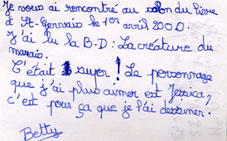 Je vous ai rencontré au salon du livre
à St-Gervais le 1er avril 2000.
J'ai lu la B.D: La créature du
marais.
C'était super! Le personnage
que j'ai plus aimer est Jessica,
c'est pour ça que je l'ai dessiner.
Betty